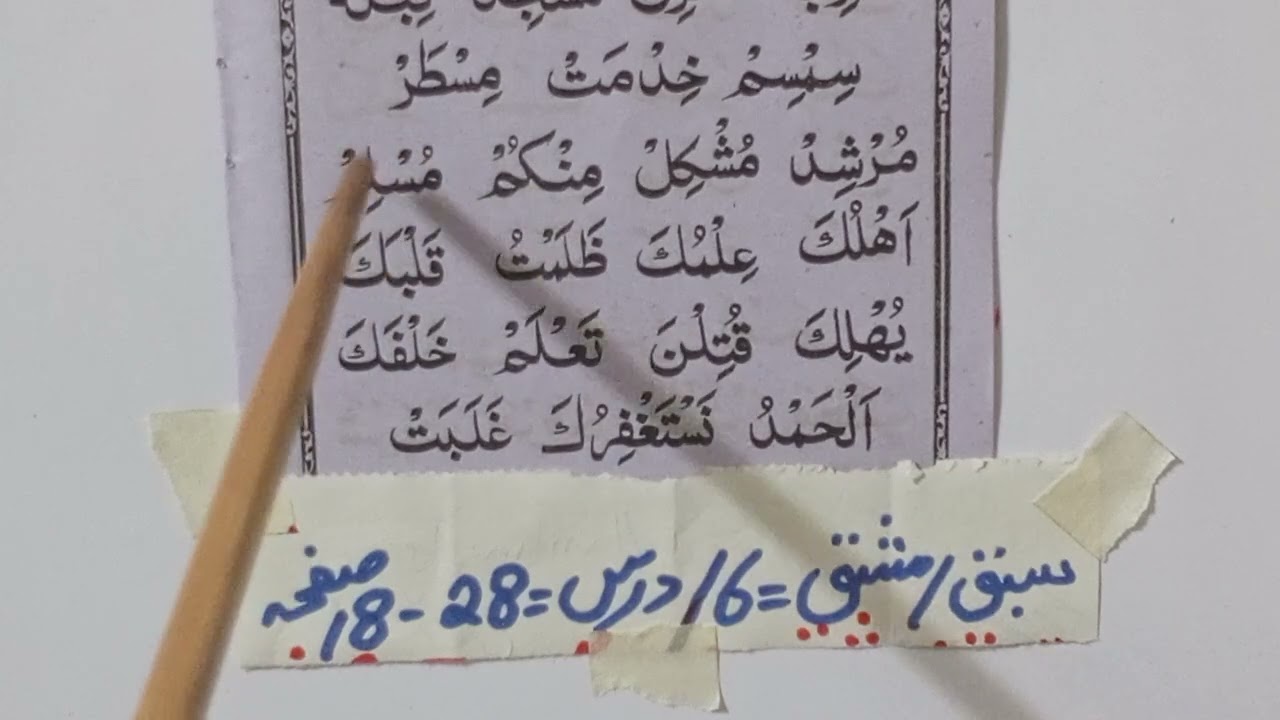 سِمْسِمْ خِدْمَتْ مِسْطَرْ
مُرْشِدْ مُشْكِلْ مِنْكُمْ
اَهْلُكَ عِلْمُكَ ظَلَمْتُ قَلْبَكَ
يُهْلِكَ قُتِلْنَ تَعْلَمْ خَلْفَكَ
اَلْحَمْدُ نَسْتَغْفِرُكَ غَلَبَتْ
سبق/مشق=6/درس=28-18صفحہ